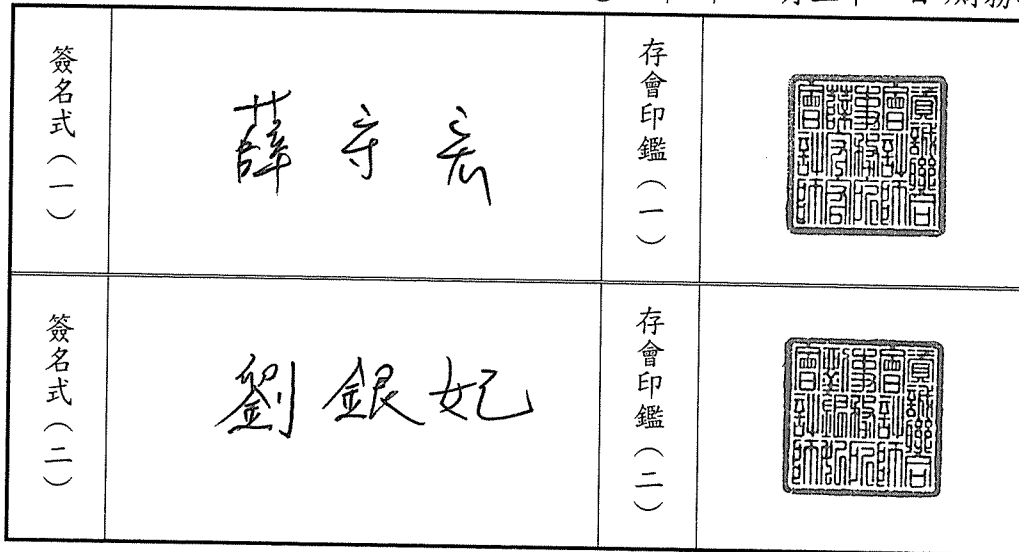 簽名式（一）
薛守宏
存會印鑑（一）
資誠聯合
會計師
事務所
薛守宏
會計師
簽名式（二）
劉銀妃
存會印鑑（二）
資誠聯合
會計師
事務所
劉銀妃
會計師